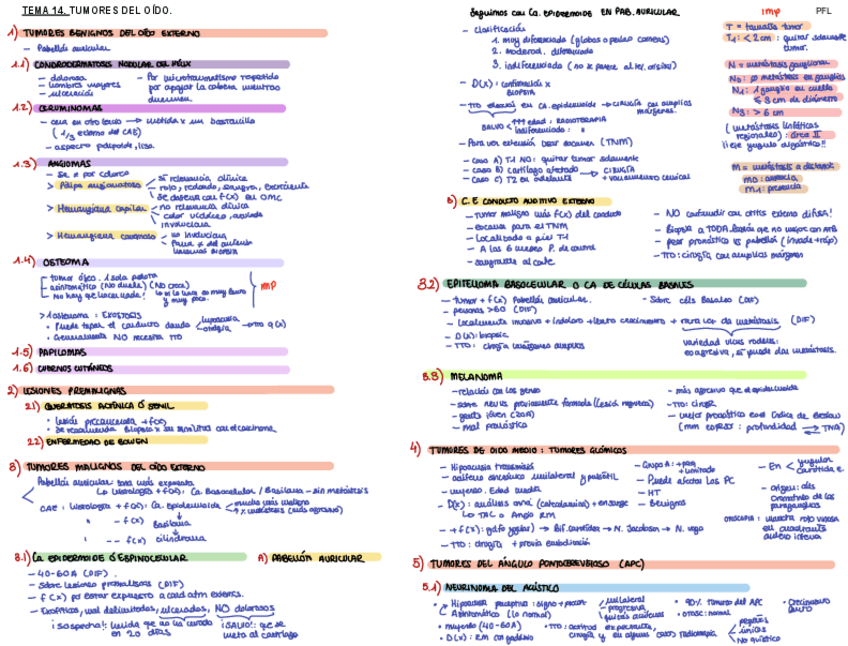 TEMA 14. TUMORES DEL OÍDO.
1) TUMORES BENIGNOS DEL OÍDO EXTERNO
- Pabellón auricular
1.1) CONDRODERMATOSIS NODULAR DEL HÉLIX
- dolorosa
- hombres mayores
- ulceración
- Por microtraumatismo repetido
por apoyar la cabeza mientras
duermen
1.2) CERUMINOMAS
- cera en otro lado → metida x un bastoncillo
(1/3 externo del CAE)
- aspecto polipoide, lisa
1.3) ANGIOMAS
- Se x por colores
> Pólipo angiomatoso
sí relevancia clínica
rojo, redondo, sangra, excreciente
> Hemangioma capilar
no relevancia clínica
involuciona
> Hemangioma cavernoso
no involuciona
1.4) OSTEOMA
- tumor óseo. 1 sola pelota
- asintomático (No duele) (No crece)
- No hay que hacer nada!
imp
>1 osteoma: EXOSTOSIS
• Puede tapar el conducto dando
hipoacusia
otalgia
→ tto q(x)
• Generalmente NO necesita TTO
1.5) PAPILOMAS
1.6) CUERNOS CUTÁNEOS
2) LESIONES PREMALIGNAS
2.1) QUERATOSIS ACTÍNICA Ó SENIL
• lesión precancerosa +f(x)
• Se recomienda biopsia x su similitud con el carcinoma
2.2) ENFERMEDAD DE BOWEN
3) TUMORES MALIGNOS DEL OÍDO EXTERNO
Pabellón auricular zona más expuesta
↳ Histología +f(x): Ca. Basocelular / Basilioma - sin metástasis
CAE: Histología +f(x): Ca. Epidermoide
mucho más maligno
↑x metástasis (más agresivo)
" - f(x) Basilioma
" -- f(x) cilindroma
3.1) Ca EPIDERMOIDE Ó ESPINOCELULAR
A) PABELLÓN AURICULAR
- 40-60A (DIF).
- Sobre lesiones premalignas (DIF)
- f(x) por estar expuesto a cond atm extern.
- Exofíticos, mal delimitados, ulcerados, NO dolorosos
¡Sospecha!: herida que no ha curado
en 20 días
¡SALVO!: que se
meta al cartílago
Seguimos con Ca. EPIDERMOIDE EN PAB. AURICULAR
- Clasificación
1. muy diferenciado (globos o perlas corneas)
2. moderad. diferenciado
3. indiferenciado (no x parece al tej. origen)
- D(x): confirmación x
BIOPSIA
- TTO elección en CA. epidermoide → CIRUGÍA con amplios
márgenes.
SALVO
↑↑↑ edad: RADIOTERAPIA
- Para ver extensión usar escáner (TNM)
- caso A) T1 NO: quitar tumor solamente
- caso B) cartílago afectado
- caso C) T2 en adelante
→ CIRUGÍA
+ vaciamiento cervical
imp
PFL
T = tamaño tumor
T1: < 2 cm: quitar solamente
tumor.
N = metástasis ganglionar
N0: Ø metástasis en ganglios
N1: 1 ganglio en cuello
≤ 3 cm de diámetro
N3: > 6 cm
(metástasis linfáticas
regionales): área II
¡¡ eje yugulo digástrico!!
M = metástasis a distancia
M0: ausencia
M1: presencia
B) C.E CONDUCTO AUDITIVO EXTERNO
- tumor maligno más f(x) del conducto
- escaner para el TNM
- A las 6 meses P. de control
- sangrante al corte
- NO confundir con otitis externa difusa!
- Biopsia a TODA lesión que no mejora con ATB
- peor pronóstico vs pabellón (invade +ráp)
- TTO: cirugía con amplios márgenes
3.2) EPITELIOMA BASOCELULAR O CA DE CÉLULAS BASALES
- tumor +f(x) Pabellón auricular.
- Sobre céls Basales (DIF)
- personas >60 (DIF)
- Localmente invasivo + indoloro + lento crecimiento + rara vez da metástasis (DIF)
- D(x): biopsia
- TTO: cirugía márgenes amplios
variedad ulcus rodens:
es agresiva, sí puede dar metástasis.
3.3) MELANOMA
- relación con los genes
- sobre nevus previamente formado (Lesión negruzca)
- gente joven (20A)
- mal pronóstico
- más agresivo que el epidermoide
- TTO: cirugía
- valor pronóstico es el Índice de Breslow
(mm espesor: profundidad ⇄ TNM)
4) TUMORES DE OIDO MEDIO: TUMORES GLÓMICOS
- Hipoacusia transmisión
- acúfeno unilateral y pulsátil
- mujeres. Edad media
- D(x): análisis orina (catecolaminas) + en sangre
↳ TAC o Angio RM
- +f(x): golfo yugular → Bif. carótidea → N. Jacobson → N. vago
- TTO: cirugía + previa embolización
- Puede afectar los PC
- HT
- Benignos
- En
yugular
carótida e.
- origen: céls
cromafines de los
paraganglios
OTOSCOPIA: mancha rojo vinosa
en cuadrante
5) TUMORES DEL ÁNGULO PONTOCEREBELOSO (APC)
5.1) NEURINOMA DEL ACÚSTICO
• Hipoacusia perceptiva: signo + precoz
Asintomático (lo normal)
unilateral
progresiva
• mujeres (40-60A)
• D(x): RM con gadolinio
• TTO: actitud expectante,
cirugía y en algunos casos radioterapia
pequeños
únicos
No quístico
• 90% tumores del APC
• otosc: normal
• Crecimiento
lento